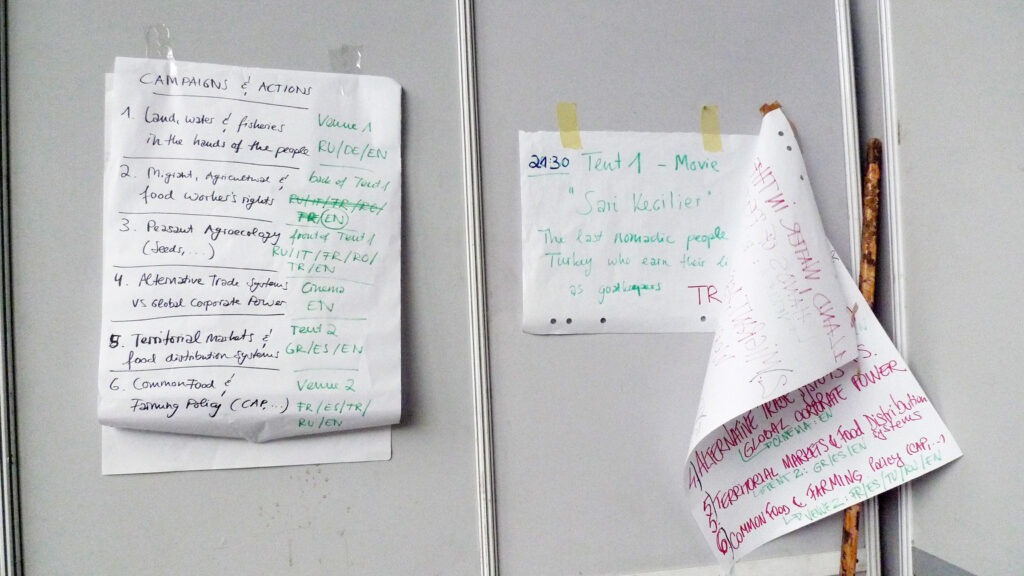 CAMPAIGNS & ACTIONS
1. Land, water & fisheries
in the hands of the people
Venue 1
RU/DE/EN
2. Migrant, Agricultural &
food worker's rights
back of Tent 1
RU/IT/FR/RO/
TR/EN
3. Peasant Agroecology
(Seeds,...)
front of Tent 1
RU/IT/FR/RO/
TR/EN
4. Alternative Trade Systems
vs Global Corporate Power
Cinema
EN
5. Territorial Markets &
food distribution systems
Tent 2
GR/ES/EN
6. Common Food &
Farming Policy (CAP,...)
Venue 2
FR/ES/TR/
RU/EN
21:30 Tent 1 - Movie
"Sari Kecilier"
The last nomadic people
Turkey who earn their
as goatkeepers
TR
LAND, WATER
4) ALTERNATIVE TRADE SYSTEMS VS
GLOBAL COPORATE POWER
: EN
5) TERRITORIAL MARKETS & Food Distribution
Systems
TENT 2: GR/ES/EN
6) COMMON FOOD & FARMING Policy (CAP,...)
VENUE 2: FR/ES/TU/RU/EN